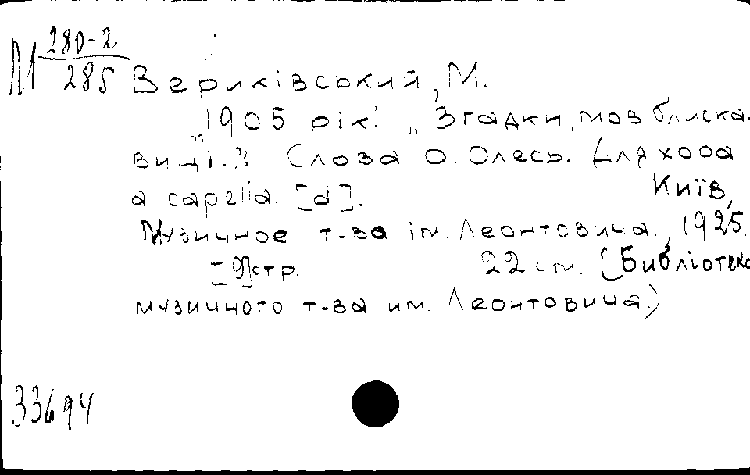 М 280-2
285
Вериківський, М.
„1905 рік". „Згадки, мов блиска-
виці." Слова О. Олесь. Для хора
a capella. [d].
Київ,
Музичное т-ва ім. Леонтовича, 1925.
стр. 22 см. (Бібліотека
музичного т-ва им. Леонтовича)
33694